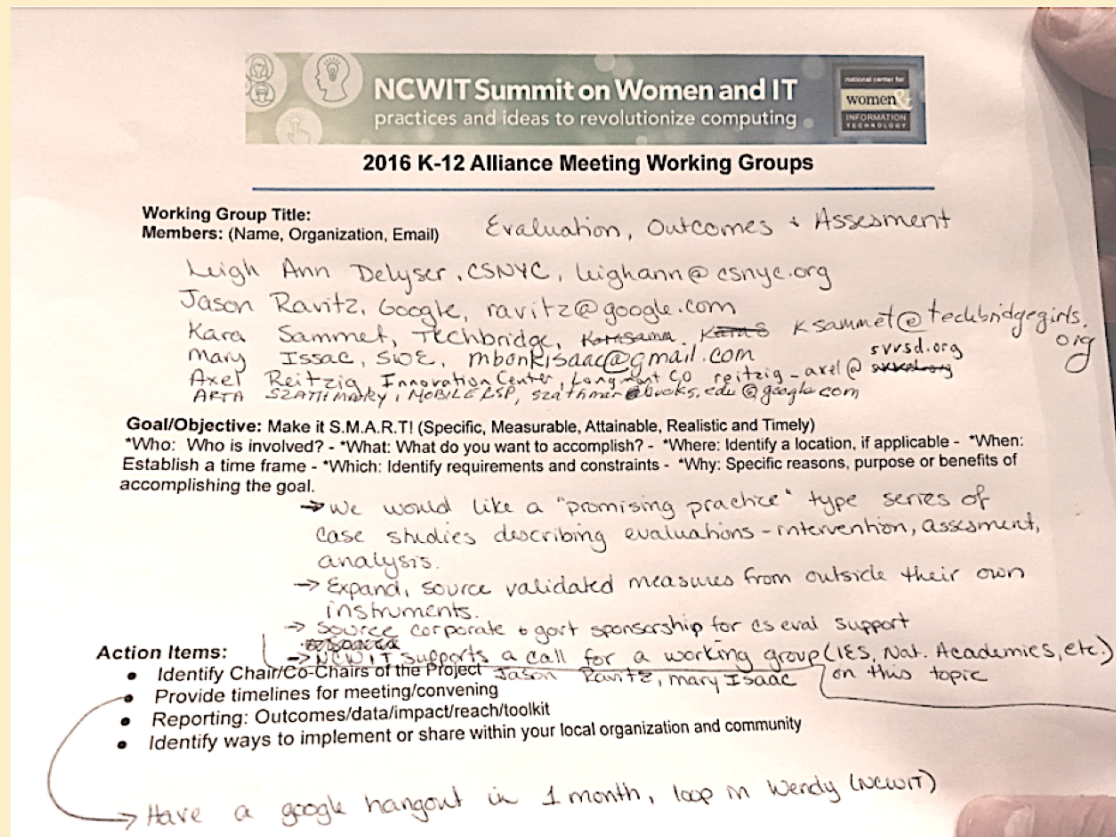 NCWIT Summit on Women and IT
practices and ideas to revolutionize computing
national center for
women &
INFORMATION
TECHNOLOGY
2016 K-12 Alliance Meeting Working Groups
Working Group Title:
Evaluation, Outcomes + Assesment
Members: (Name, Organization, Email)
Leigh Ann Delyser, CSNYC, leighann@csnyc.org
Jason Ravitz, Google, ravitz@google.com
Kara Sammet, Techbridge, ksammet@techbridgegirls.
org
Mary Issac, SWE, mbonkisaac@gmail.com
svvsd.org
Axel Reitzig, Innovation Center, Longmont CO reitzig-axel@
ARTA SZATHMARY, MOBILE CSP, szathmar@bucks.edu @google.com
Goal/Objective: Make it S.M.A.R.T! (Specific, Measurable, Attainable, Realistic and Timely)
*Who: Who is involved? - *What: What do you want to accomplish? - *Where: Identify a location, if applicable - *When:
Establish a time frame - *Which: Identify requirements and constraints - *Why: Specific reasons, purpose or benefits of
accomplishing the goal.
→ We would like a "promising practice" type series of
case studies describing evaluations - intervention, assesment,
analysis.
→ Expand, source validated measures from outside their own
instruments.
→ Source corporate + govt sponsorship for cs eval support
→ NCWIT supports a call for a working group (IES, Nat. Academies, etc.)
on this topic
Action Items:
• Identify Chair/Co-Chairs of the Project Jason Ravitz, Mary Isaac
• Provide timelines for meeting/convening
• Reporting: Outcomes/data/impact/reach/toolkit
• Identify ways to implement or share within your local organization and community
→ Have a google hangout in 1 month, loop in Wendy (NCWIT)